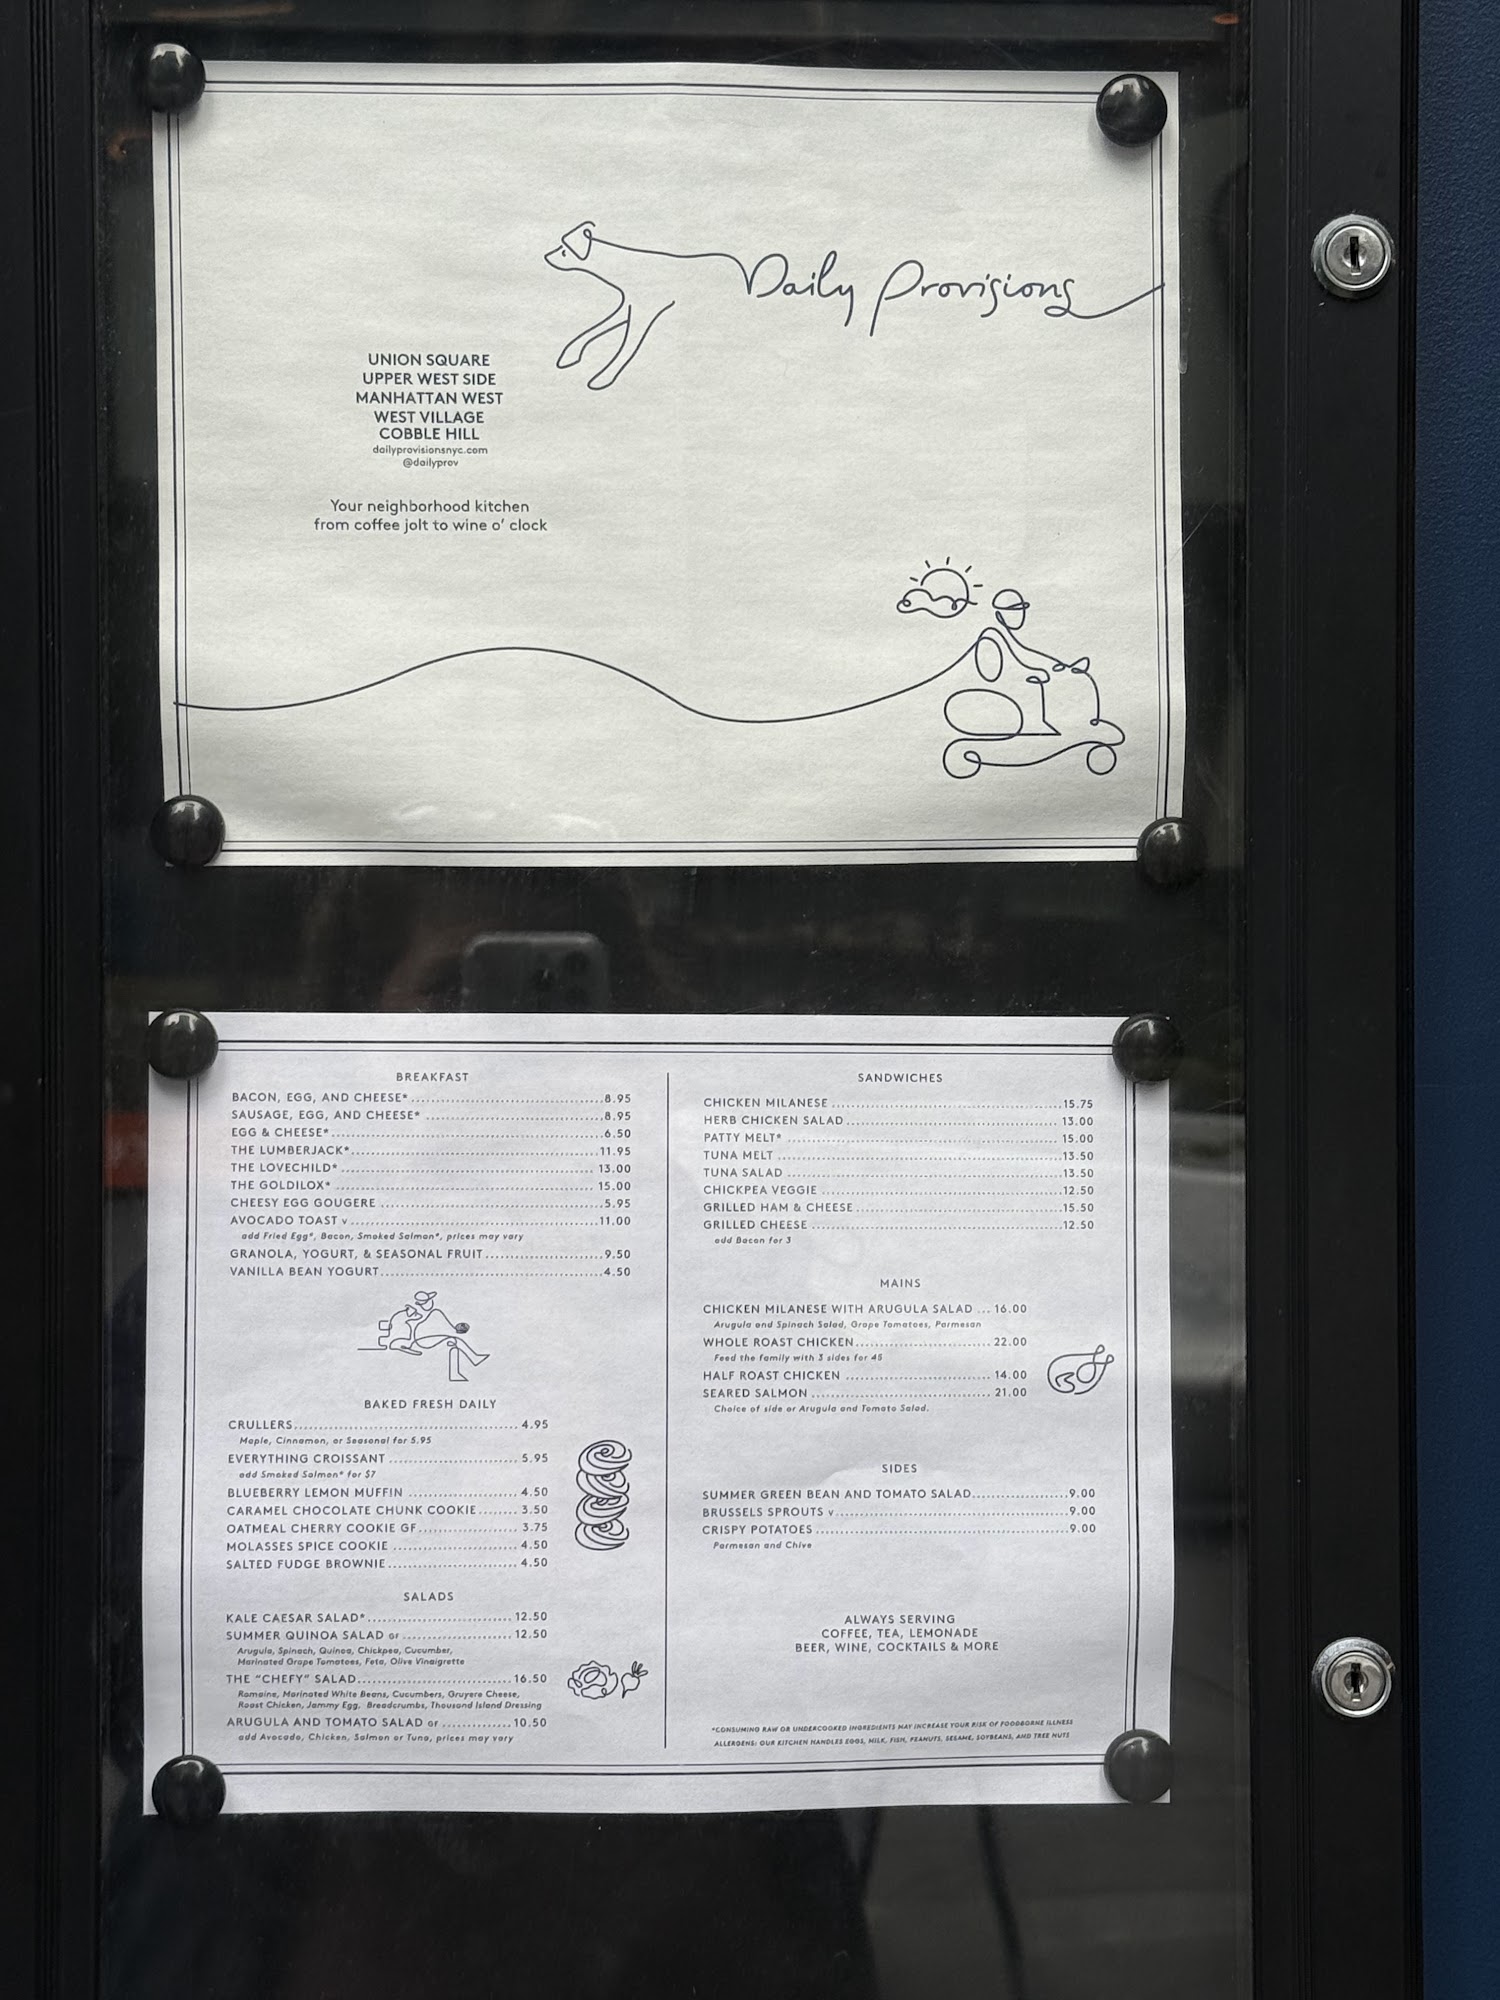 Daily Provisions
UNION SQUARE
UPPER WEST SIDE
MANHATTAN WEST
WEST VILLAGE
COBBLE HILL
dailyprovisionsnyc.com
@dailyprov
Your neighborhood kitchen
from coffee jolt to wine o' clock
BREAKFAST
BACON, EGG, AND CHEESE* 8.95
SAUSAGE, EGG, AND CHEESE* 8.95
EGG & CHEESE* 6.50
THE LUMBERJACK* 11.95
THE LOVECHILD* 13.00
THE GOLDILOX* 15.00
CHEESY EGG GOUGERE 5.95
AVOCADO TOAST v 11.00
add Fried Egg*, Bacon, Smoked Salmon*, prices may vary
GRANOLA, YOGURT, & SEASONAL FRUIT 9.50
VANILLA BEAN YOGURT 4.50
BAKED FRESH DAILY
CRULLERS 4.95
Maple, Cinnamon, or Seasonal for 5.95
EVERYTHING CROISSANT 5.95
add Smoked Salmon* for $7
BLUEBERRY LEMON MUFFIN 4.50
CARAMEL CHOCOLATE CHUNK COOKIE 3.50
OATMEAL CHERRY COOKIE GF 3.75
MOLASSES SPICE COOKIE 4.50
SALTED FUDGE BROWNIE 4.50
SALADS
KALE CAESAR SALAD* 12.50
SUMMER QUINOA SALAD GF 12.50
Arugula, Spinach, Quinoa, Chickpea, Cucumber,
Marinated Grape Tomatoes, Feta, Olive Vinaigrette
THE "CHEFY" SALAD 16.50
Romaine, Marinated White Beans, Cucumbers, Gruyere Cheese,
Roast Chicken, Jammy Egg, Breadcrumbs, Thousand Island Dressing
ARUGULA AND TOMATO SALAD GF 10.50
add Avocado, Chicken, Salmon or Tuna, prices may vary
SANDWICHES
CHICKEN MILANESE 15.75
HERB CHICKEN SALAD 13.00
PATTY MELT* 15.00
TUNA MELT 13.50
TUNA SALAD 13.50
CHICKPEA VEGGIE 12.50
GRILLED HAM & CHEESE 15.50
GRILLED CHEESE 12.50
add Bacon for 3
MAINS
CHICKEN MILANESE WITH ARUGULA SALAD ... 16.00
Arugula and Spinach Salad, Grape Tomatoes, Parmesan
WHOLE ROAST CHICKEN 22.00
Feed the family with 3 sides for 45
HALF ROAST CHICKEN 14.00
SEARED SALMON 21.00
Choice of side or Arugula and Tomato Salad.
SIDES
SUMMER GREEN BEAN AND TOMATO SALAD 9.00
BRUSSELS SPROUTS v 9.00
CRISPY POTATOES 9.00
Parmesan and Chive
ALWAYS SERVING
COFFEE, TEA, LEMONADE
BEER, WINE, COCKTAILS & MORE
*CONSUMING RAW OR UNDERCOOKED INGREDIENTS MAY INCREASE YOUR RISK OF FOODBORNE ILLNESS
ALLERGENS: OUR KITCHEN HANDLES EGGS, MILK, FISH, PEANUTS, SESAME, SOYBEANS, AND TREE NUTS